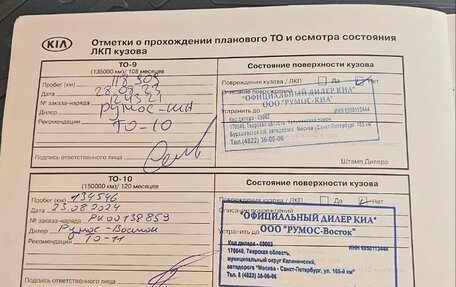 KIA
Отметки о прохождении планового ТО и осмотра состояния
ЛКП кузова
ТО-9
(135000 км)/ 108 месяцев
Состояние поверхности кузова
Пробег (км) 118 305
Повреждении кузова / ЛКП Да Нет
Дата 28.08.23
Описание повреждений
№ заказа-наряда 129321
Дилер Румос-
Устранить до
Рекомендации ТО-10
"ОФИЦИАЛЬНЫЙ ДИЛЕР КИА"
ООО "РУМОС-КИА"
Код дилера - 69002
Тел.(4822) 36-06-06
Подпись ответственного лица
Штамп Дилера
ТО-10
(150000 км)/ 120 месяцев
Состояние поверхности кузова
Пробег (км) 134546
Повреждении кузова / ЛКП Да Нет
Дата 23.08.2024
№ заказа-наряда РК00138859
Дилер Румос-Восток
Рекомендации ТО-11
"ОФИЦИАЛЬНЫЙ ДИЛЕР КИА"
ООО "РУМОС-Восток"
Код дилера - 69002
ИНН 6950113444
170540, Тверская область,
муниципальный округ Калининский,
автодорога "Москва - Санкт-Петербург, 165-й км"
Тел. 8 (4822) 36-06-06
Подпись ответственного